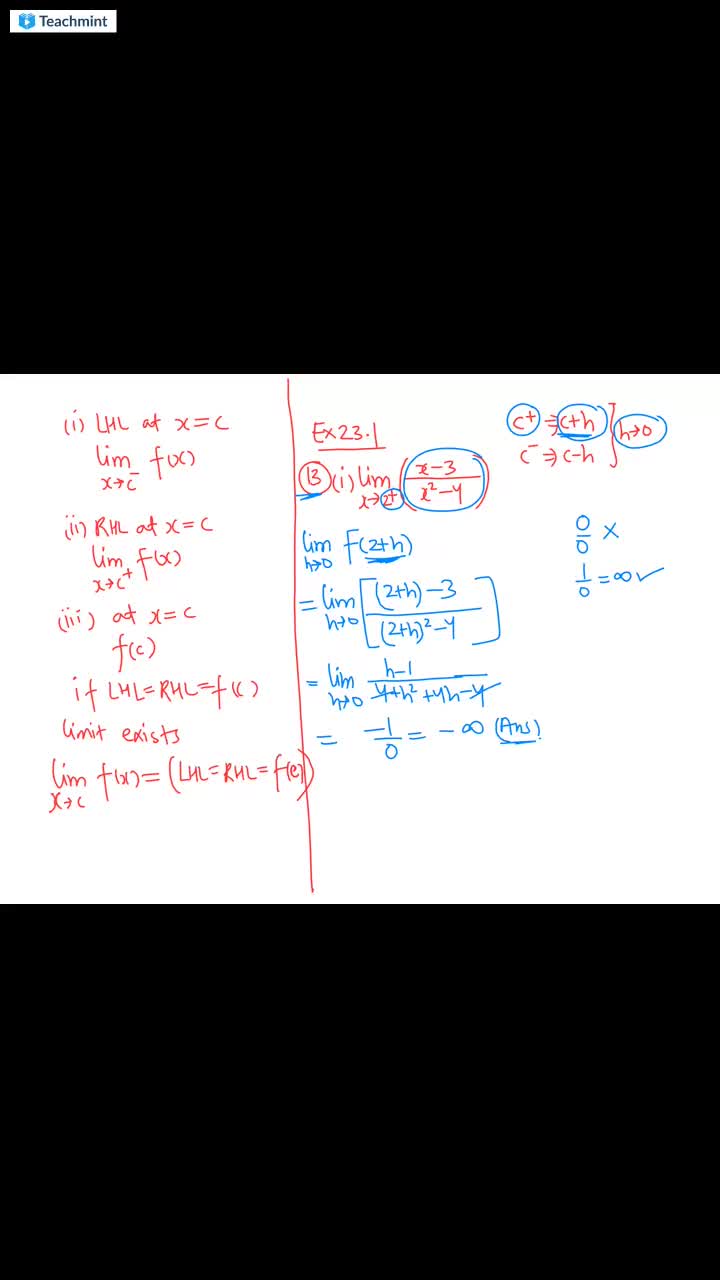 Teachmint
(i) LHL at x=c
lim f(x)
x→c⁻
(ii) RHL at x=c
lim f(x)
x→c⁺
(iii) at x=c
f(c)
if LHL=RHL=f(c)
limit exists
lim f(x)=(LHL=RHL=f(c))
x→c
Ex 23.1
c⁺ ⇒ c+h
c⁻ ⇒ c-h ] h→0
13 (i) lim_{x→2⁺} ((x-3)/(x²-4))
lim_{h→0} f(2+h)
= lim_{h→0} [((2+h)-3)/((2+h)²-4)]
= lim_{h→0} (h-1)/(4+h²+4h-4)
= -1/0 = -∞ (Ans).
0/0 ×
1/0 = ∞ ✓